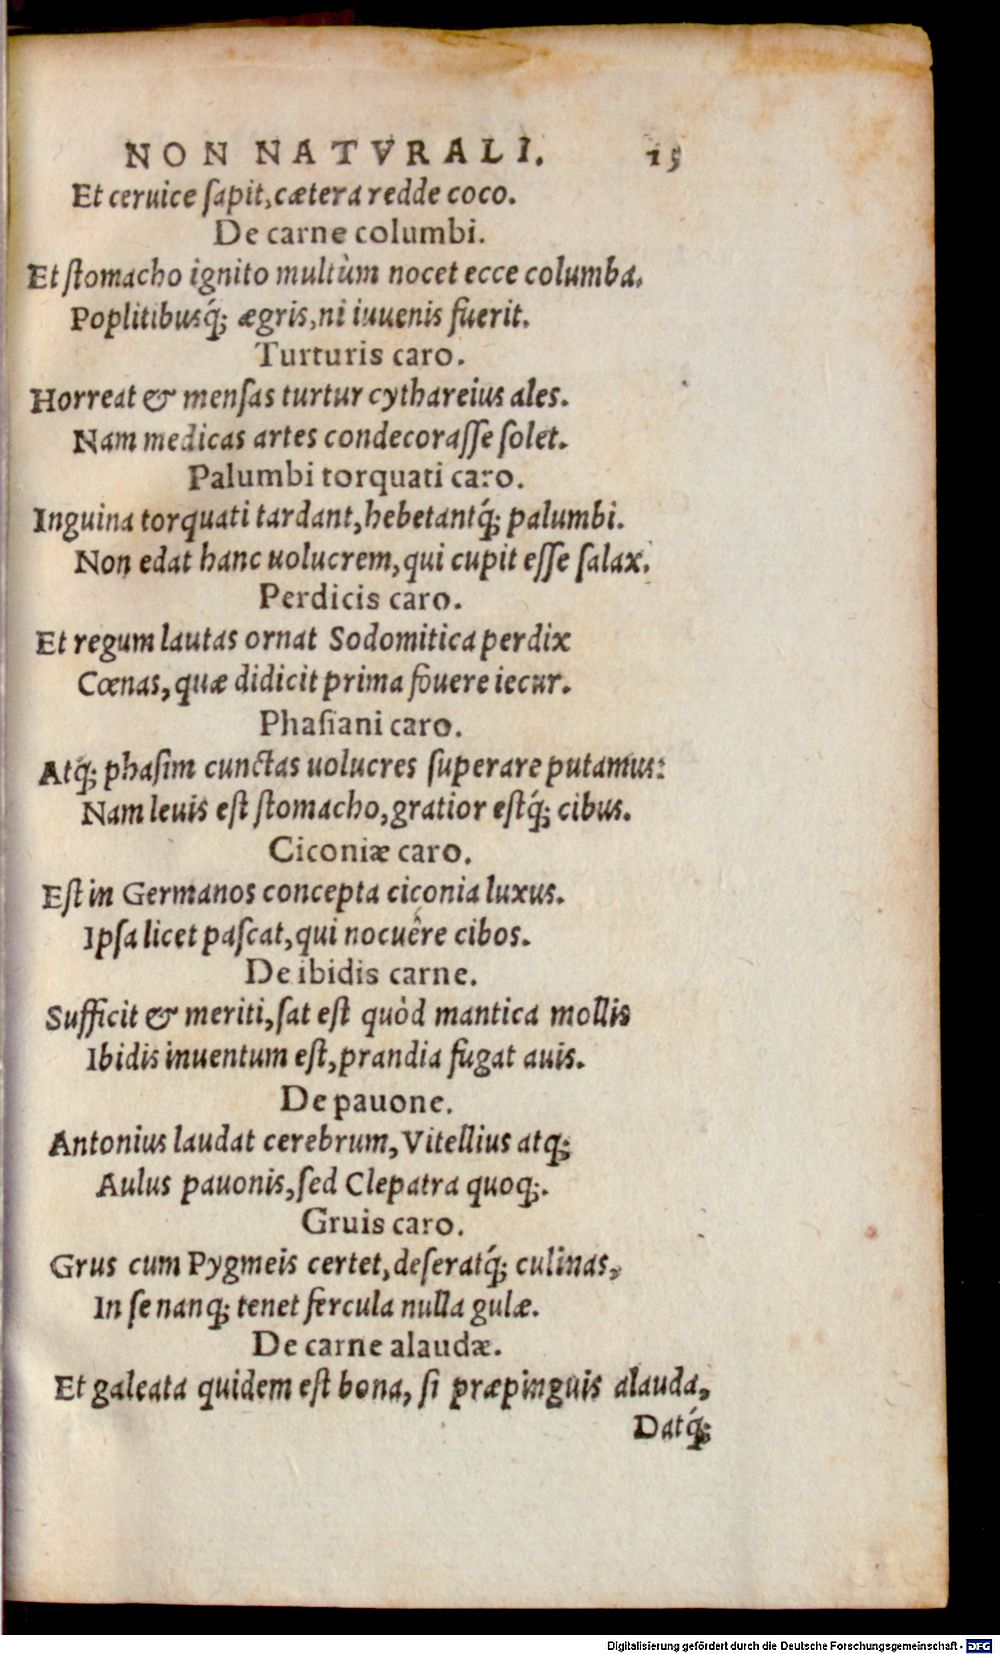 NON NATVRALI. 15
Et ceruice ſapit, cætera redde coco.
De carne columbi.
Et ſtomacho ignito multùm nocet ecce columba.
Poplitibusq́; ægris, ni iuuenis fuerit.
Turturis caro.
Horreat & menſas turtur cythareius ales.
Nam medicas artes condecoraſſe ſolet.
Palumbi torquati caro.
Inguina torquati tardant, hebetantq́; palumbi.
Non edat hanc uolucrem, qui cupit eſſe ſalax.
Perdicis caro.
Et regum lautas ornat Sodomitica perdix
Cœnas, quæ didicit prima fouere iecur.
Phaſiani caro.
Atq́; phaſim cunctas uolucres ſuperare putamus:
Nam leuis eſt ſtomacho, gratior eſtq́; cibus.
Ciconiæ caro.
Eſt in Germanos concepta ciconia luxus.
Ipſa licet paſcat, qui nocuêre cibos.
De ibidis carne.
Sufficit & meriti, ſat eſt quòd mantica mollis
Ibidis inuentum eſt, prandia fugat auis.
De pauone.
Antonius laudat cerebrum, Vitellius atq;
Aulus pauonis, ſed Clepatra quoq;.
Gruis caro.
Grus cum Pygmeis certet, deſeratq́; culinas,
In ſe nanq; tenet fercula nulla gulæ.
De carne alaudæ.
Et galeata quidem eſt bona, ſi præpinguis alauda,
Datq́;
Digitalisierung gefördert durch die Deutsche Forschungsgemeinschaft - DFG